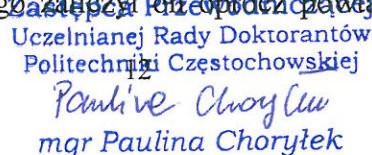 Zastępca Przewodniczącej
Uczelnianej Rady Doktorantów
Politechniki Częstochowskiej
12
mgr Paulina Choryłek